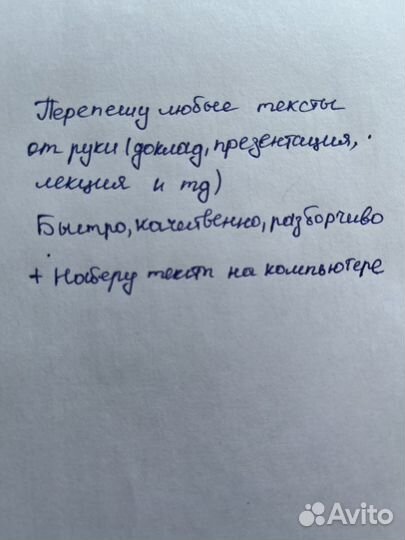 Перепешу любые тексты
от руки (доклад, презентация,
лекция и тд)
Быстро, качественно, разборчиво
+ Наберу текст на компьютере
Avito